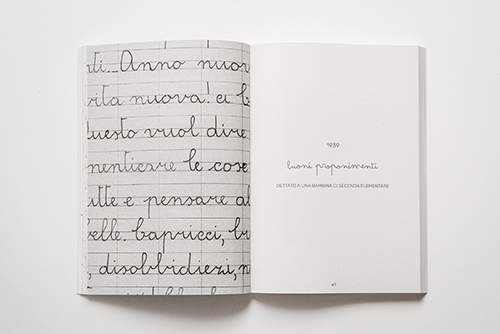 ti... Anno nuov
vita nuova! ci b
Questo vuol dire
menticare le cose
utte e pensare al
belle. Capricci, bu
, disobbidiezi, n
1939
buoni proponimenti
DETTATO A UNA BAMBINA DI SECONDA ELEMENTARE